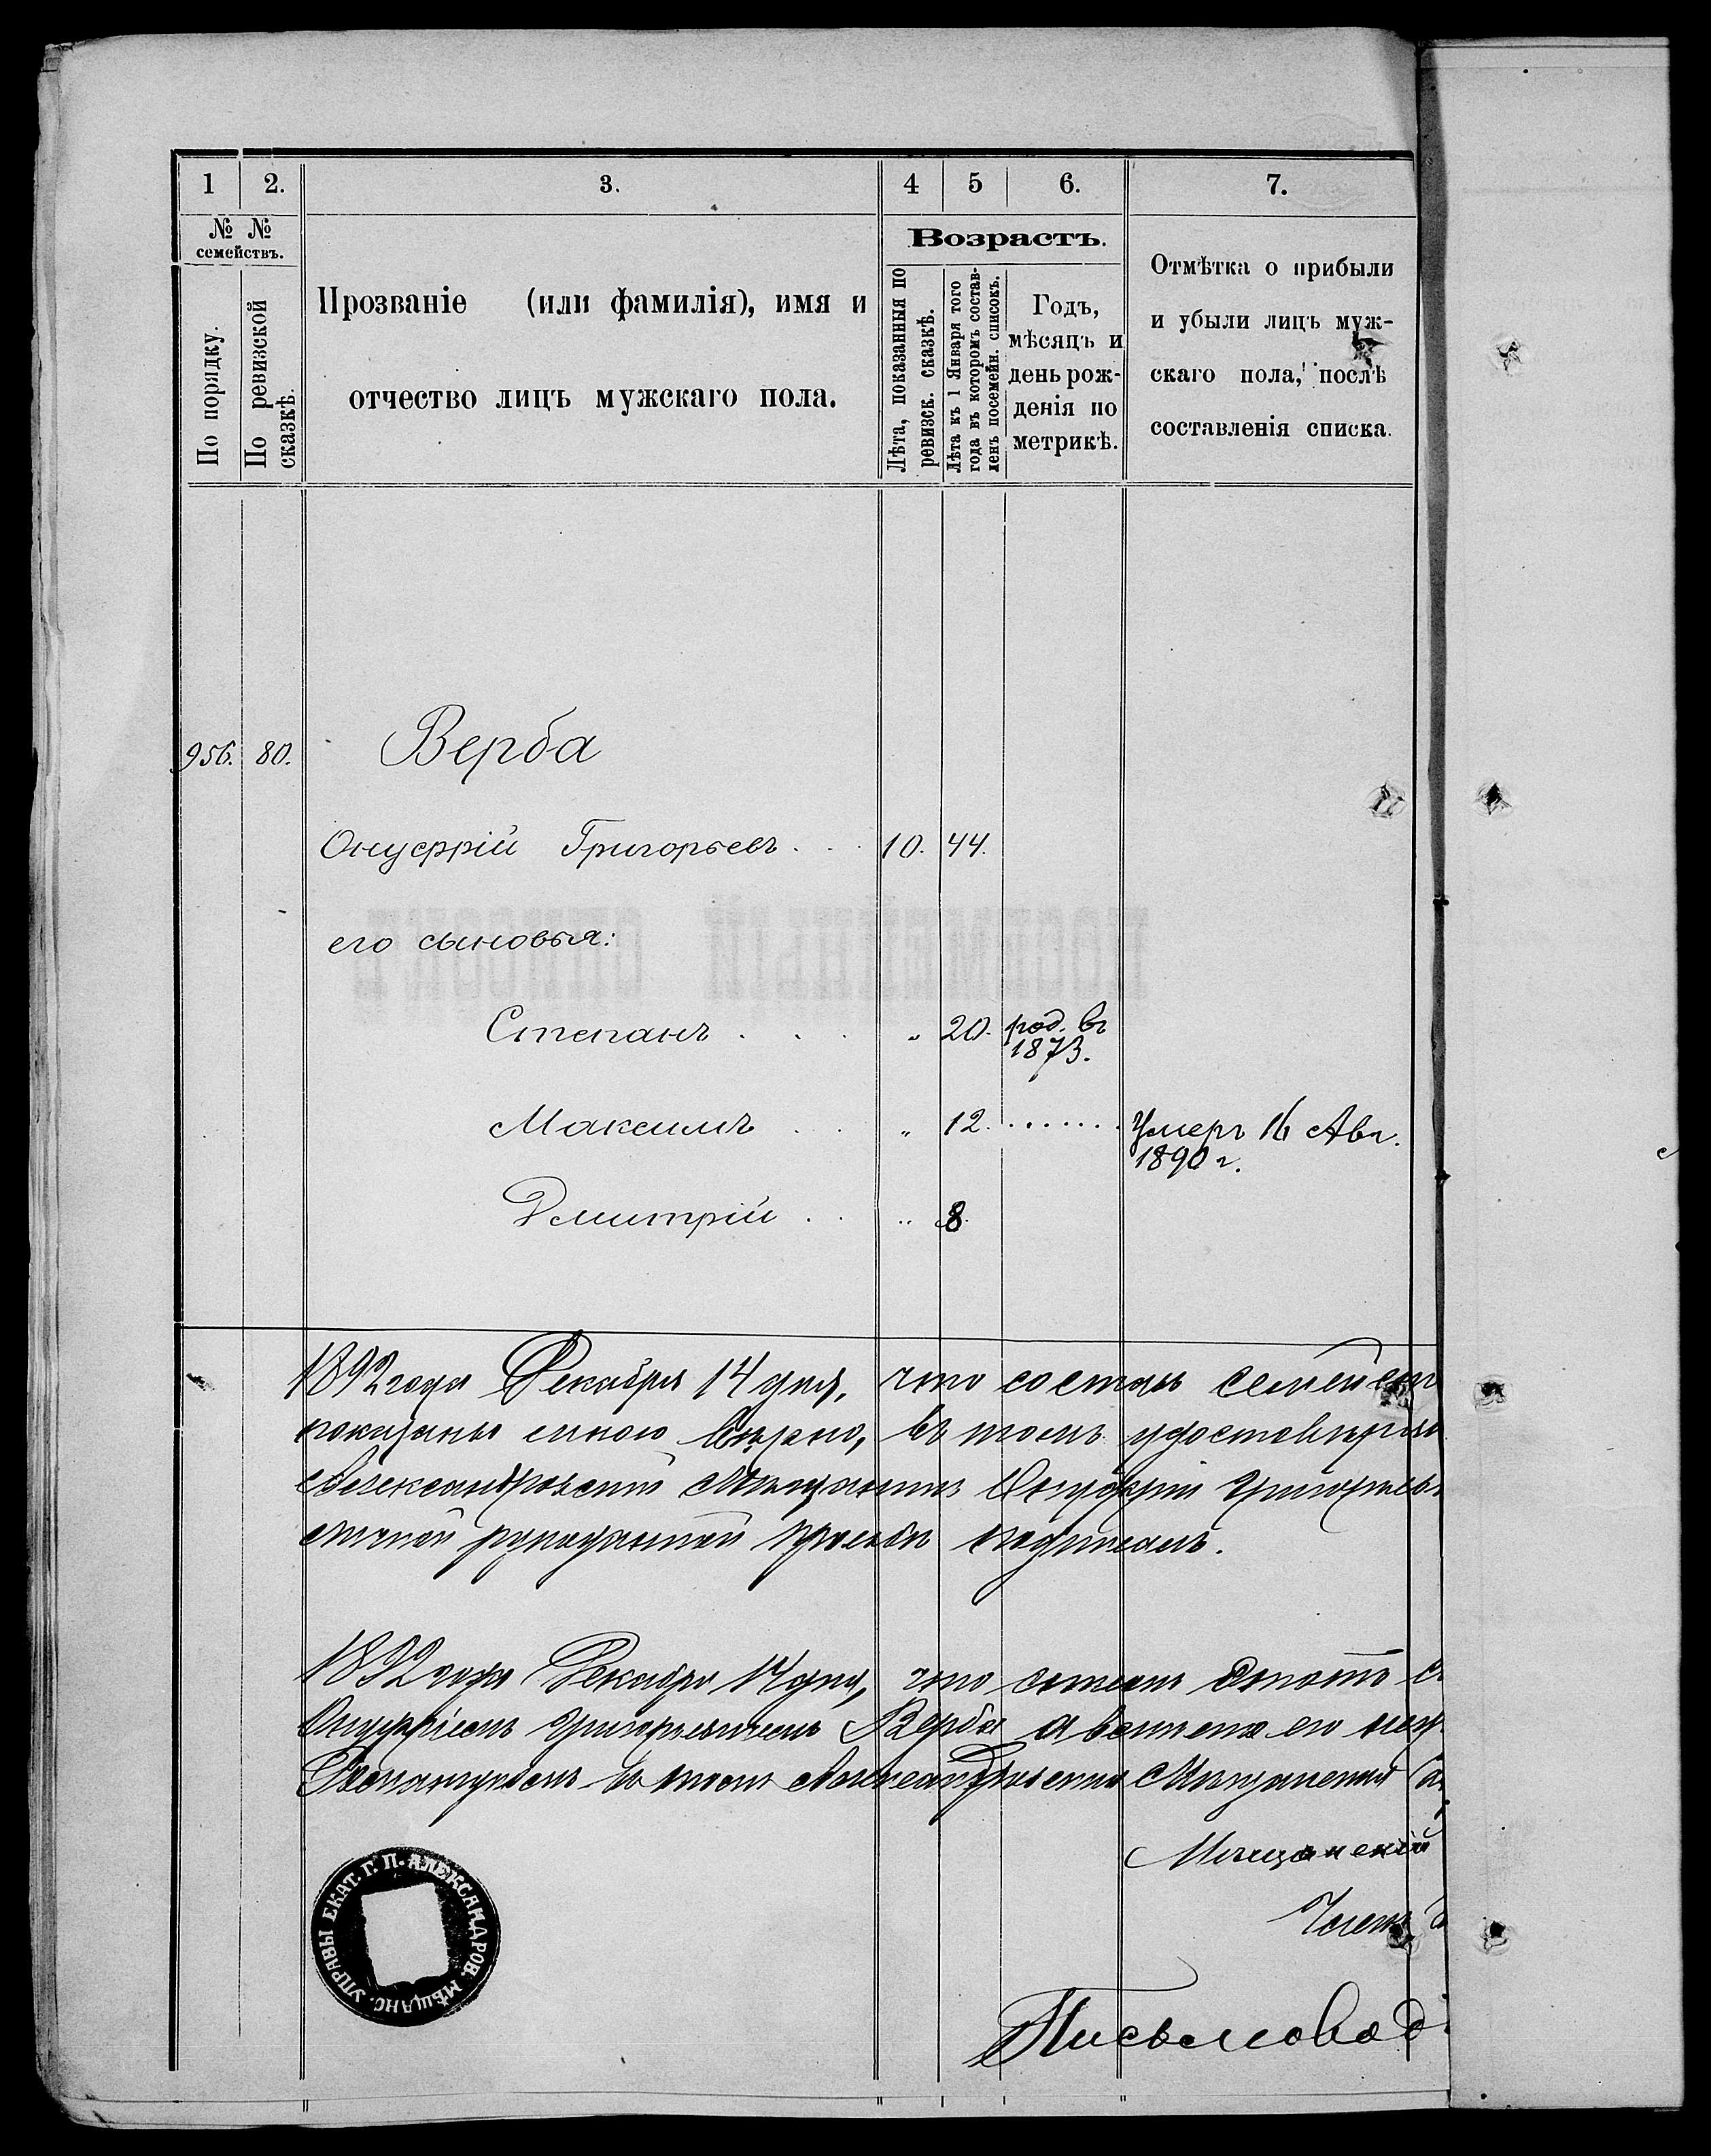 1 2. 3. 4 5 6. 7.
№ №
семействъ.
По порядку.
По ревизской
сказкѣ.
Прозваніе (или фамилія), имя и
отчество лицъ мужскаго пола.
Возрастъ.
Лѣта, показанныя по
ревизск. сказкѣ.
Лѣта къ 1 Января того
года въ которомъ состав-
ленъ посемейн. списокъ.
Годъ,
мѣсяцъ и
день рож-
денія по
метрикѣ.
Отмѣтка о прибыли
и убыли лицъ муж-
скаго пола, послѣ
составленія списка.
956. 80. Верба
Онуфрій Григорьевъ . . . 10. 44.
его сыновья:
Степанъ . . . „ 20. род. въ
1873.
Максимъ . . . „ 12. . . . . . . . Умеръ 16 Авг.
1890 г.
Дмитрій . . „ 8.
1892 года Декабря 14 дня, что составъ
показаны мною вѣрно, въ томъ
Александровскій Мѣщанинъ Онуфрій
подписалъ.
1892 года Декабря 14 дня, что
Онуфріемъ Григорьевичемъ Верба а вместо его
въ томъ Мѣщанской
Мѣщанскій
Членъ
Письмовод
УПРАВЫ ЕКАТ. Г. П. АЛЕКСАНДРОВ. МѢЩАНС.
ПОСЕМЕЙНЫЙ СПИСОКЪ